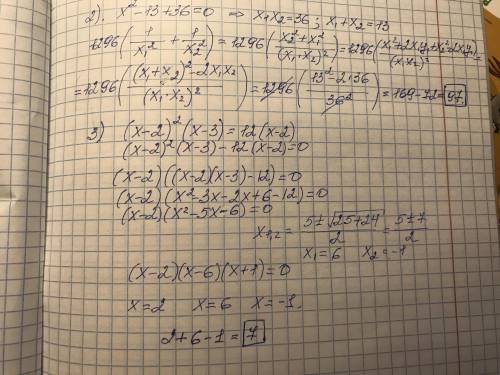 2). x² - 13 + 36 = 0 ⇒ x₁x₂ = 36 ; x₁ + x₂ = 13
1296(1/x₁² + 1/x₂²) = 1296((x₂² + x₁²)/(x₁·x₂)²) = 1296((x₁² + 2x₁x₂ + x₂² - 2x₁x₂)/(x₁x₂)²) =
= 1296(((x₁ + x₂)² - 2x₁x₂)/(x₁·x₂)²) = 1296((13² - 2·36)/36²) = 169 - 72 = 97.
3) (x-2)²(x-3) = 12(x-2)
(x-2)²(x-3) - 12(x-2) = 0
(x-2)((x-2)(x-3) - 12) = 0
(x-2)(x² - 3x - 2x + 6 - 12) = 0
(x-2)(x² - 5x - 6) = 0
x₁,₂ = (5 ± √(25+24))/2 = (5 ± 7)/2
x₁ = 6 x₂ = -1
(x-2)(x-6)(x+1) = 0
x = 2 x = 6 x = -1.
2 + 6 - 1 = 7.